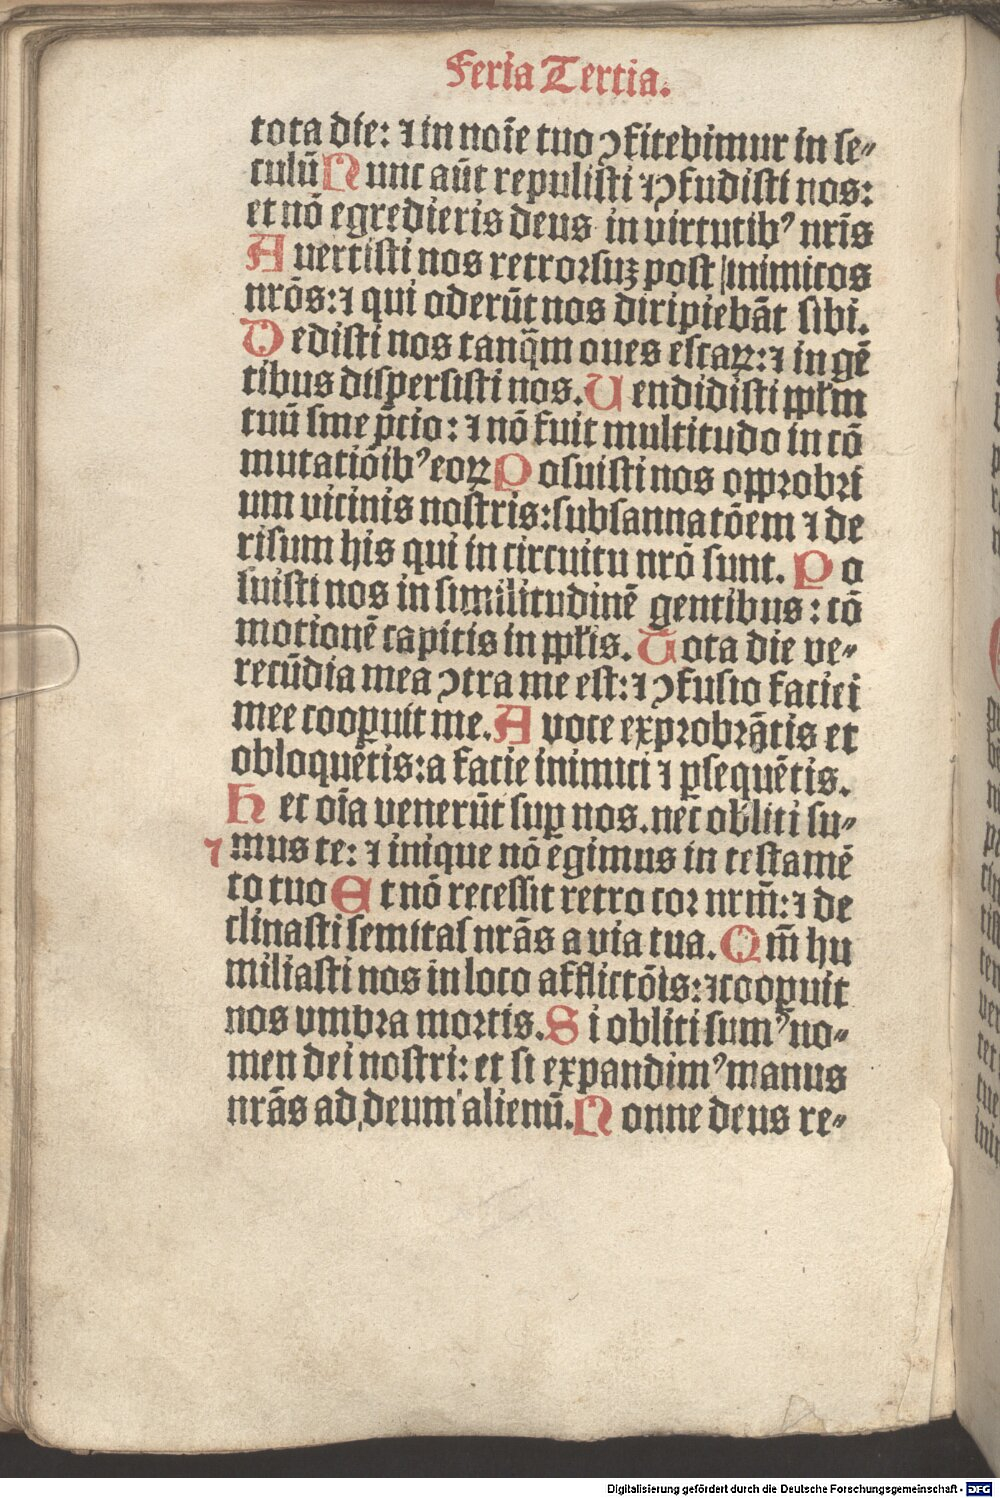 Feria Tertia.
tota die: ⁊ in noīe tuo ꝯfitebimur in se⸗
culū Nunc aūt repulisti ⁊ ꝯfudisti nos:
et nō egredieris deus in virtutibꝰ nr̄is
Auertisti nos retrorsuꝫ post inimicos
nrōs: ⁊ qui oderūt nos diripiebāt sibi.
Dedisti nos tanq̄m oues escaꝝ: ⁊ in gē
tibus dispersisti nos. Uendidisti ppl̄m
tuū sine p̄cio: ⁊ nō fuit multitudo in cō
mutatiōibꝰ eoꝝ Posuisti nos opprobri
um vicinis nostris: subsannatōem ⁊ de
risum his qui in circuitu nrō sunt. Po
suisti nos in similitudinē gentibus: cō
motionē capitis in ppl̄is. Tota die ve⸗
recūdia mea ꝯtra me est: ⁊ ꝯfusio faciei
mee cooꝑuit me. A voce exprobrātis et
obloquētis: a facie inimici ⁊ ꝑsequētis.
Hec oīa venerūt suꝑ nos. nec obliti su⸗
⁊ mus te: ⁊ inique nō egimus in testamē
to tuo Et nō recessit retro cor nrm̄: ⁊ de
clinasti semitas nrās a via tua. Qm̄ hu
miliasti nos in loco afflictōis: ⁊ cooꝑuit
nos vmbra mortis. Si obliti sumꝰ no⸗
men dei nostri: et si expandimꝰ manus
nrās ad deum alienū. Nonne deus re⸗
Digitalisierung gefördert durch die Deutsche Forschungsgemeinschaft - DFG